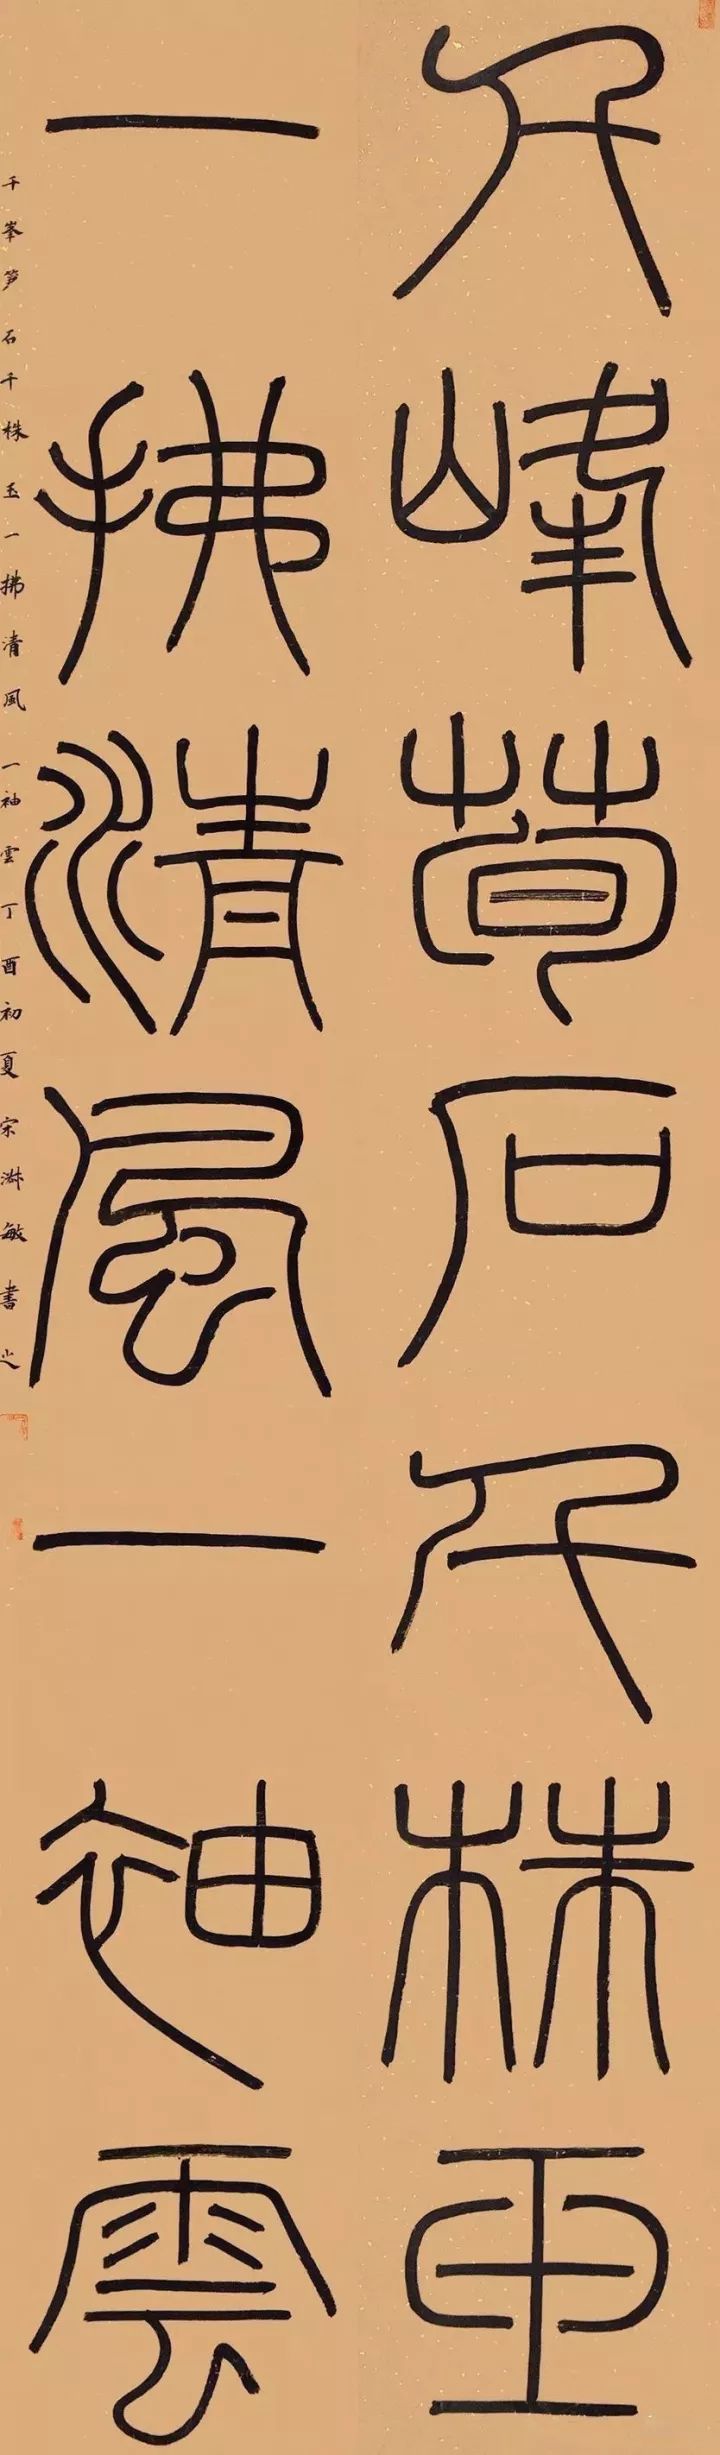 千峰筍石千株玉
一拂清風一袖雲
千峯笋石千株玉一拂清風一袖雲丁酉初夏宋淵敏書之